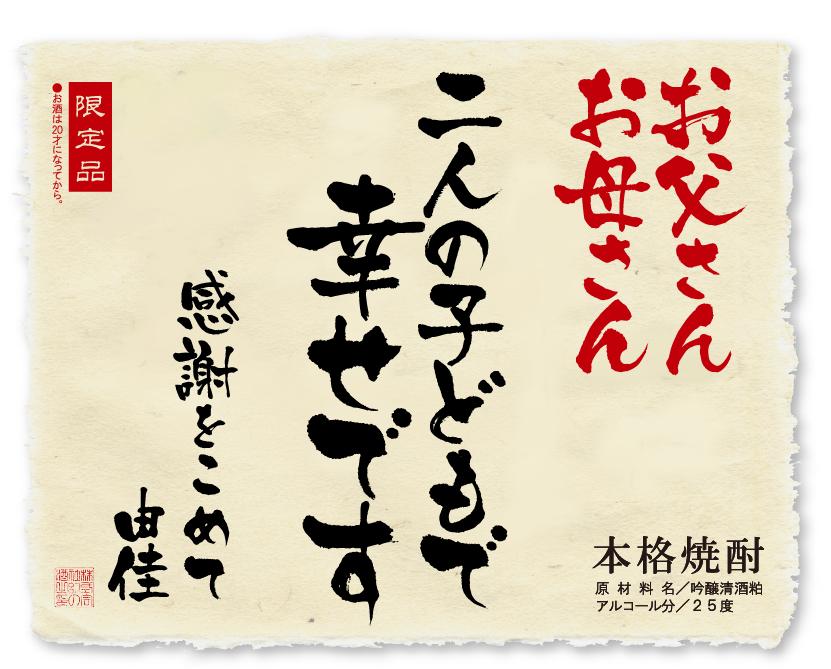 お父さん
お母さん
二人の子どもで
幸せです
感謝をこめて
由佳
本格焼酎
原材料名／吟醸清酒粕
アルコール分／25度
限定品
●お酒は20才になってから。